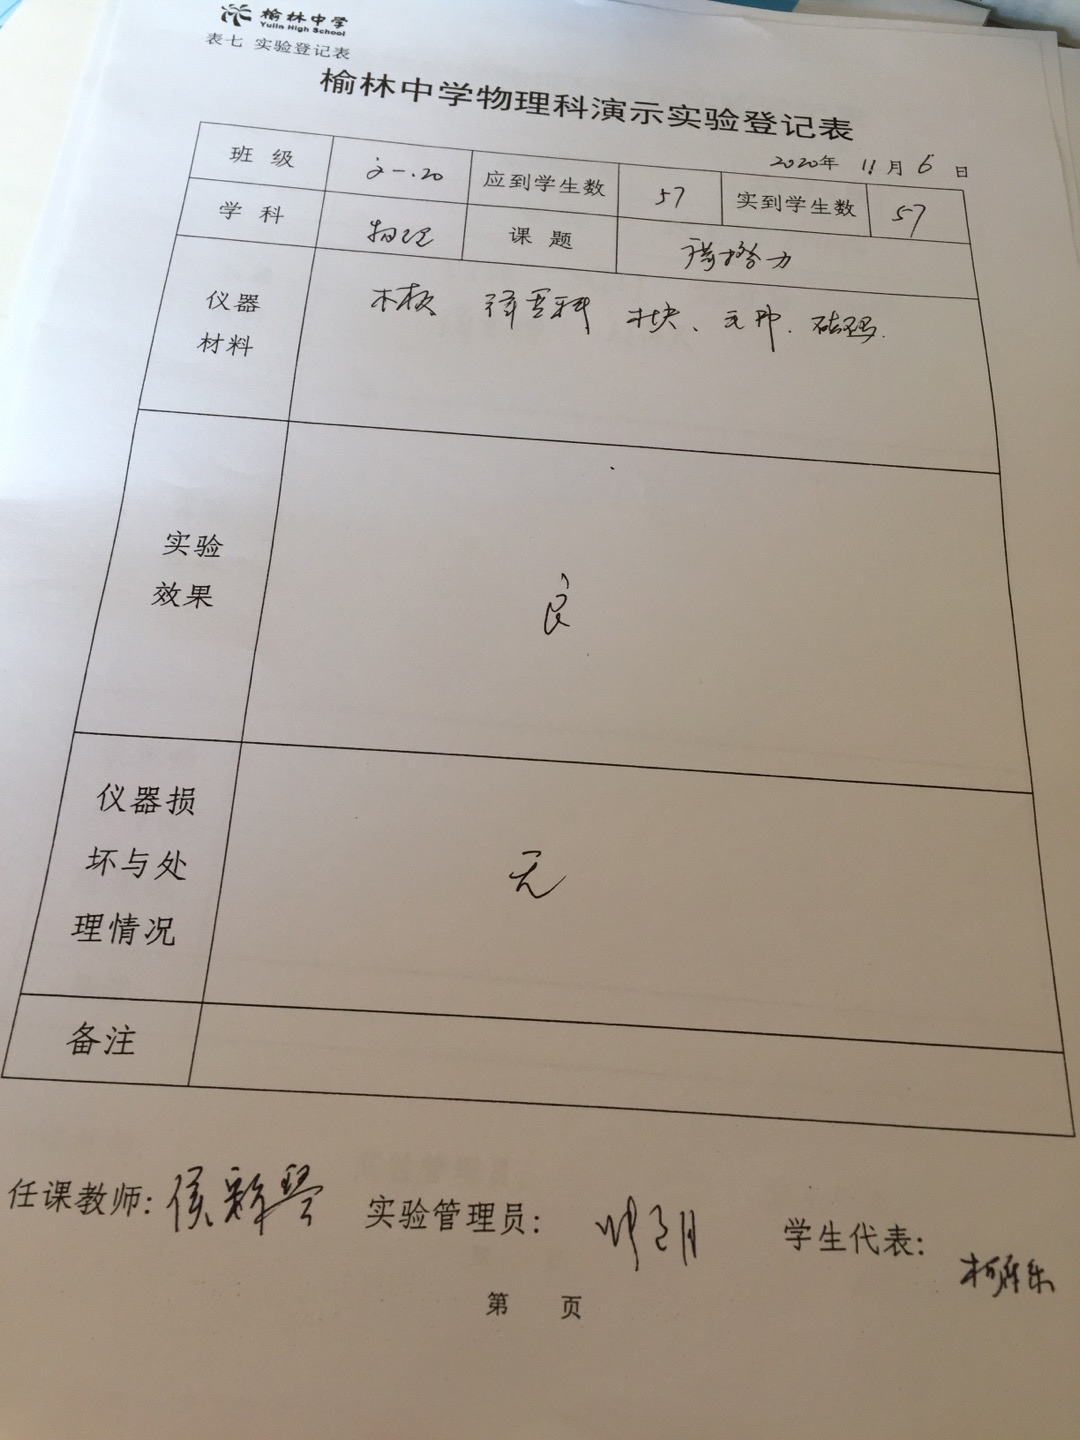 榆林中学
Yulin High School
表七 实验登记表
榆林中学物理科演示实验登记表
2020年 11月 6日
班 级 应到学生数 57 实到学生数 57
学 科 物理 课 题 摩擦力
仪器材料 木板 木块、砝码.
实验效果 良
仪器损坏与处理情况 无
备注
任课教师: 侯 实验管理员: 学生代表: 柯
第 页